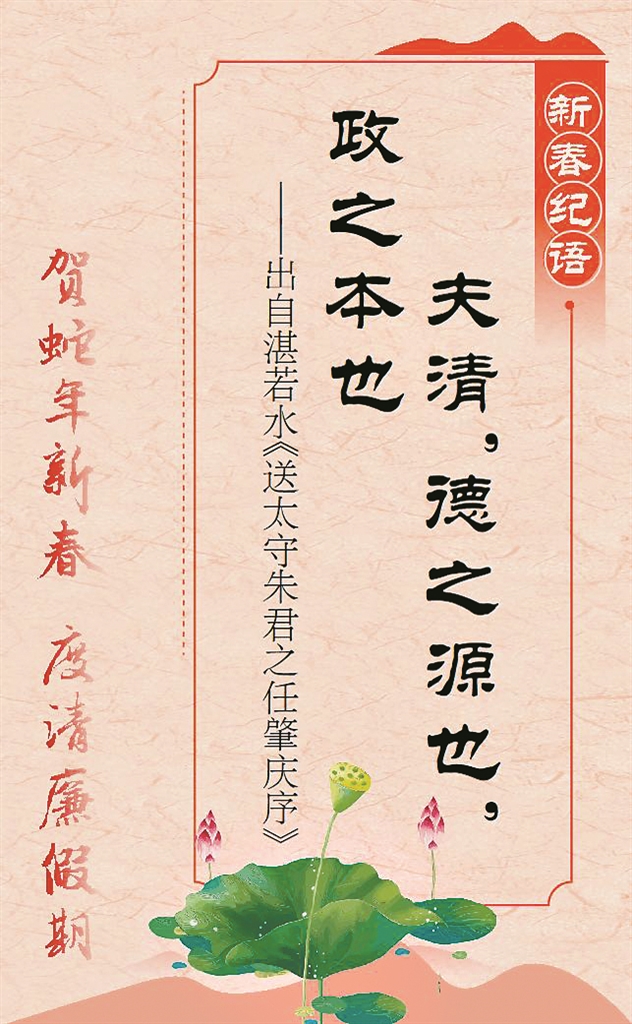 新春纪语
夫清，德之源也，
政之本也
——出自湛若水《送太守朱君之任肇庆序》
贺蛇年新春 度清廉假期